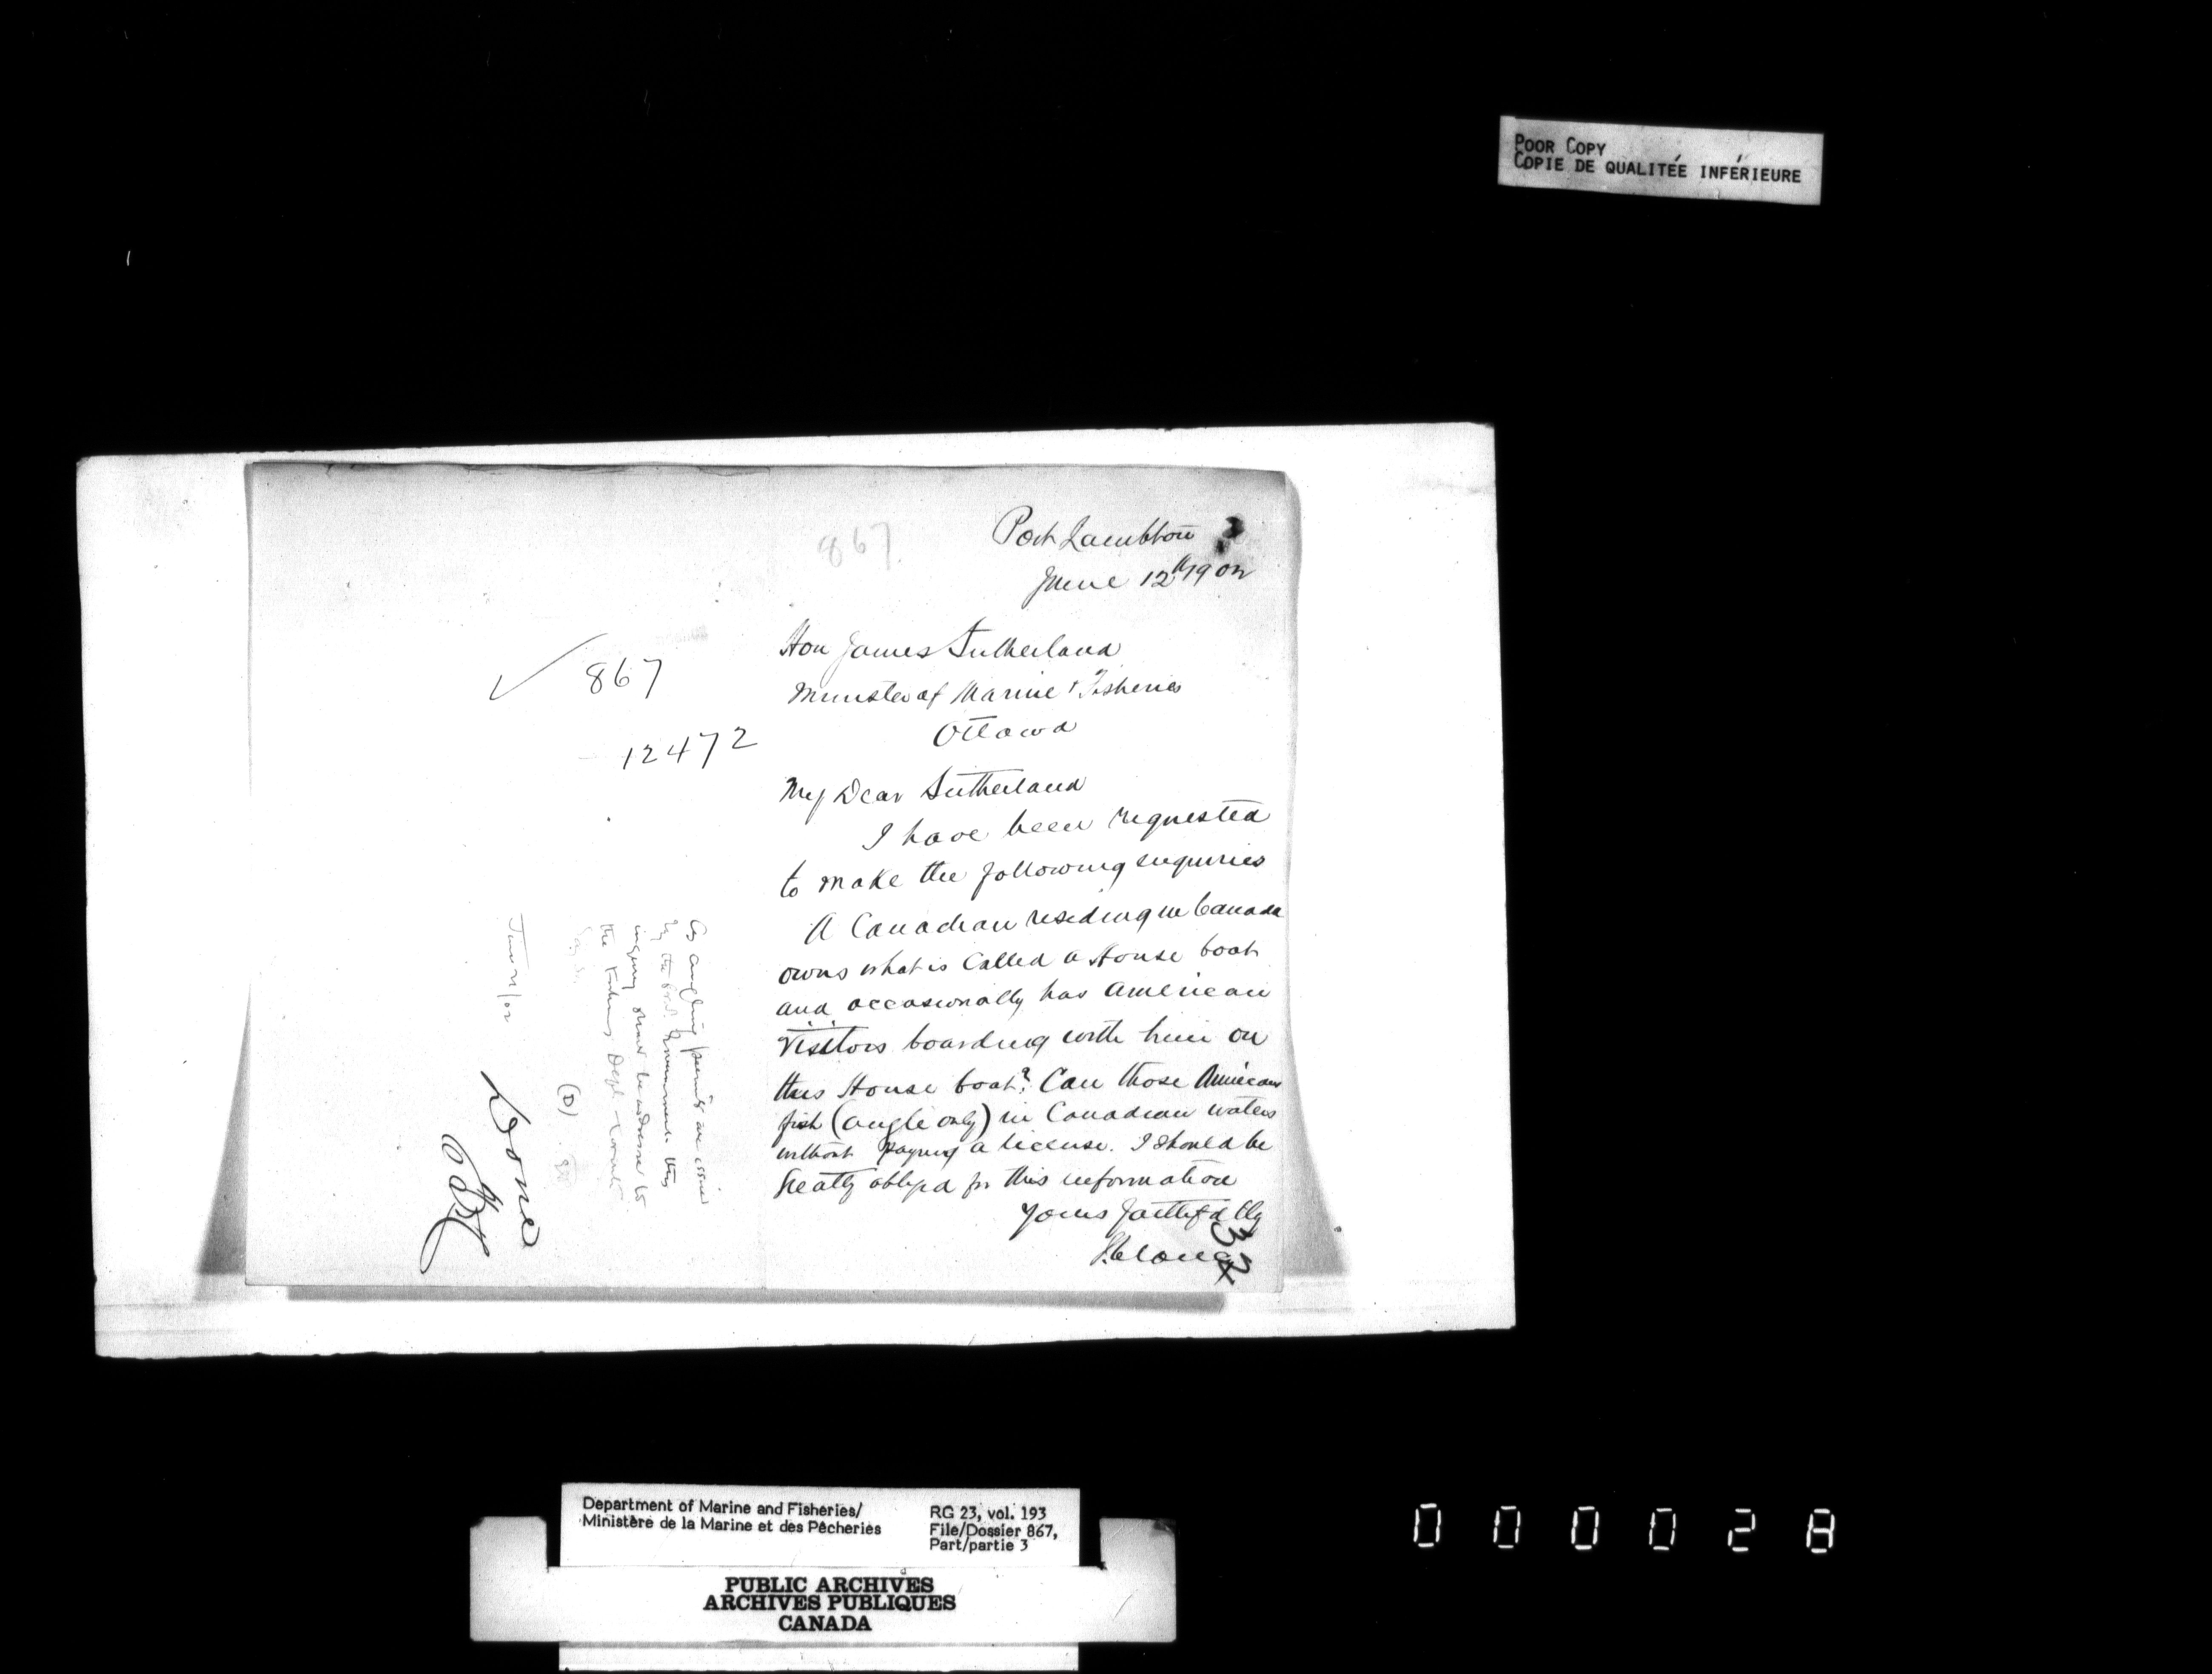 POOR COPY
COPIE DE QUALITÉE INFÉRIEURE
867.
Port Lambton
June 12th 1902
Hon James Sutherland
Minister of Marine & Fisheries
Ottawa
My Dear Sutherland
I have been requested
to make the following enquiries
A Canadian residing in Canada
owns what is Called a House boat
and occasionally has American
Visitors boarding with him on
this House boat? Can those Americans
fish (angle only) in Canadian waters
without paying a license. I should be
greatly obliged for this information
Yours faithfully
32
867
12472
As angling permits are issued
by the Govt. this
inquiry should be addressed to
the Dept
(D)
June 21/02
Done
Department of Marine and Fisheries/
Ministère de la Marine et des Pêcheries
RG 23, vol. 193
File/Dossier 867,
Part/partie 3
PUBLIC ARCHIVES
ARCHIVES PUBLIQUES
CANADA
000028